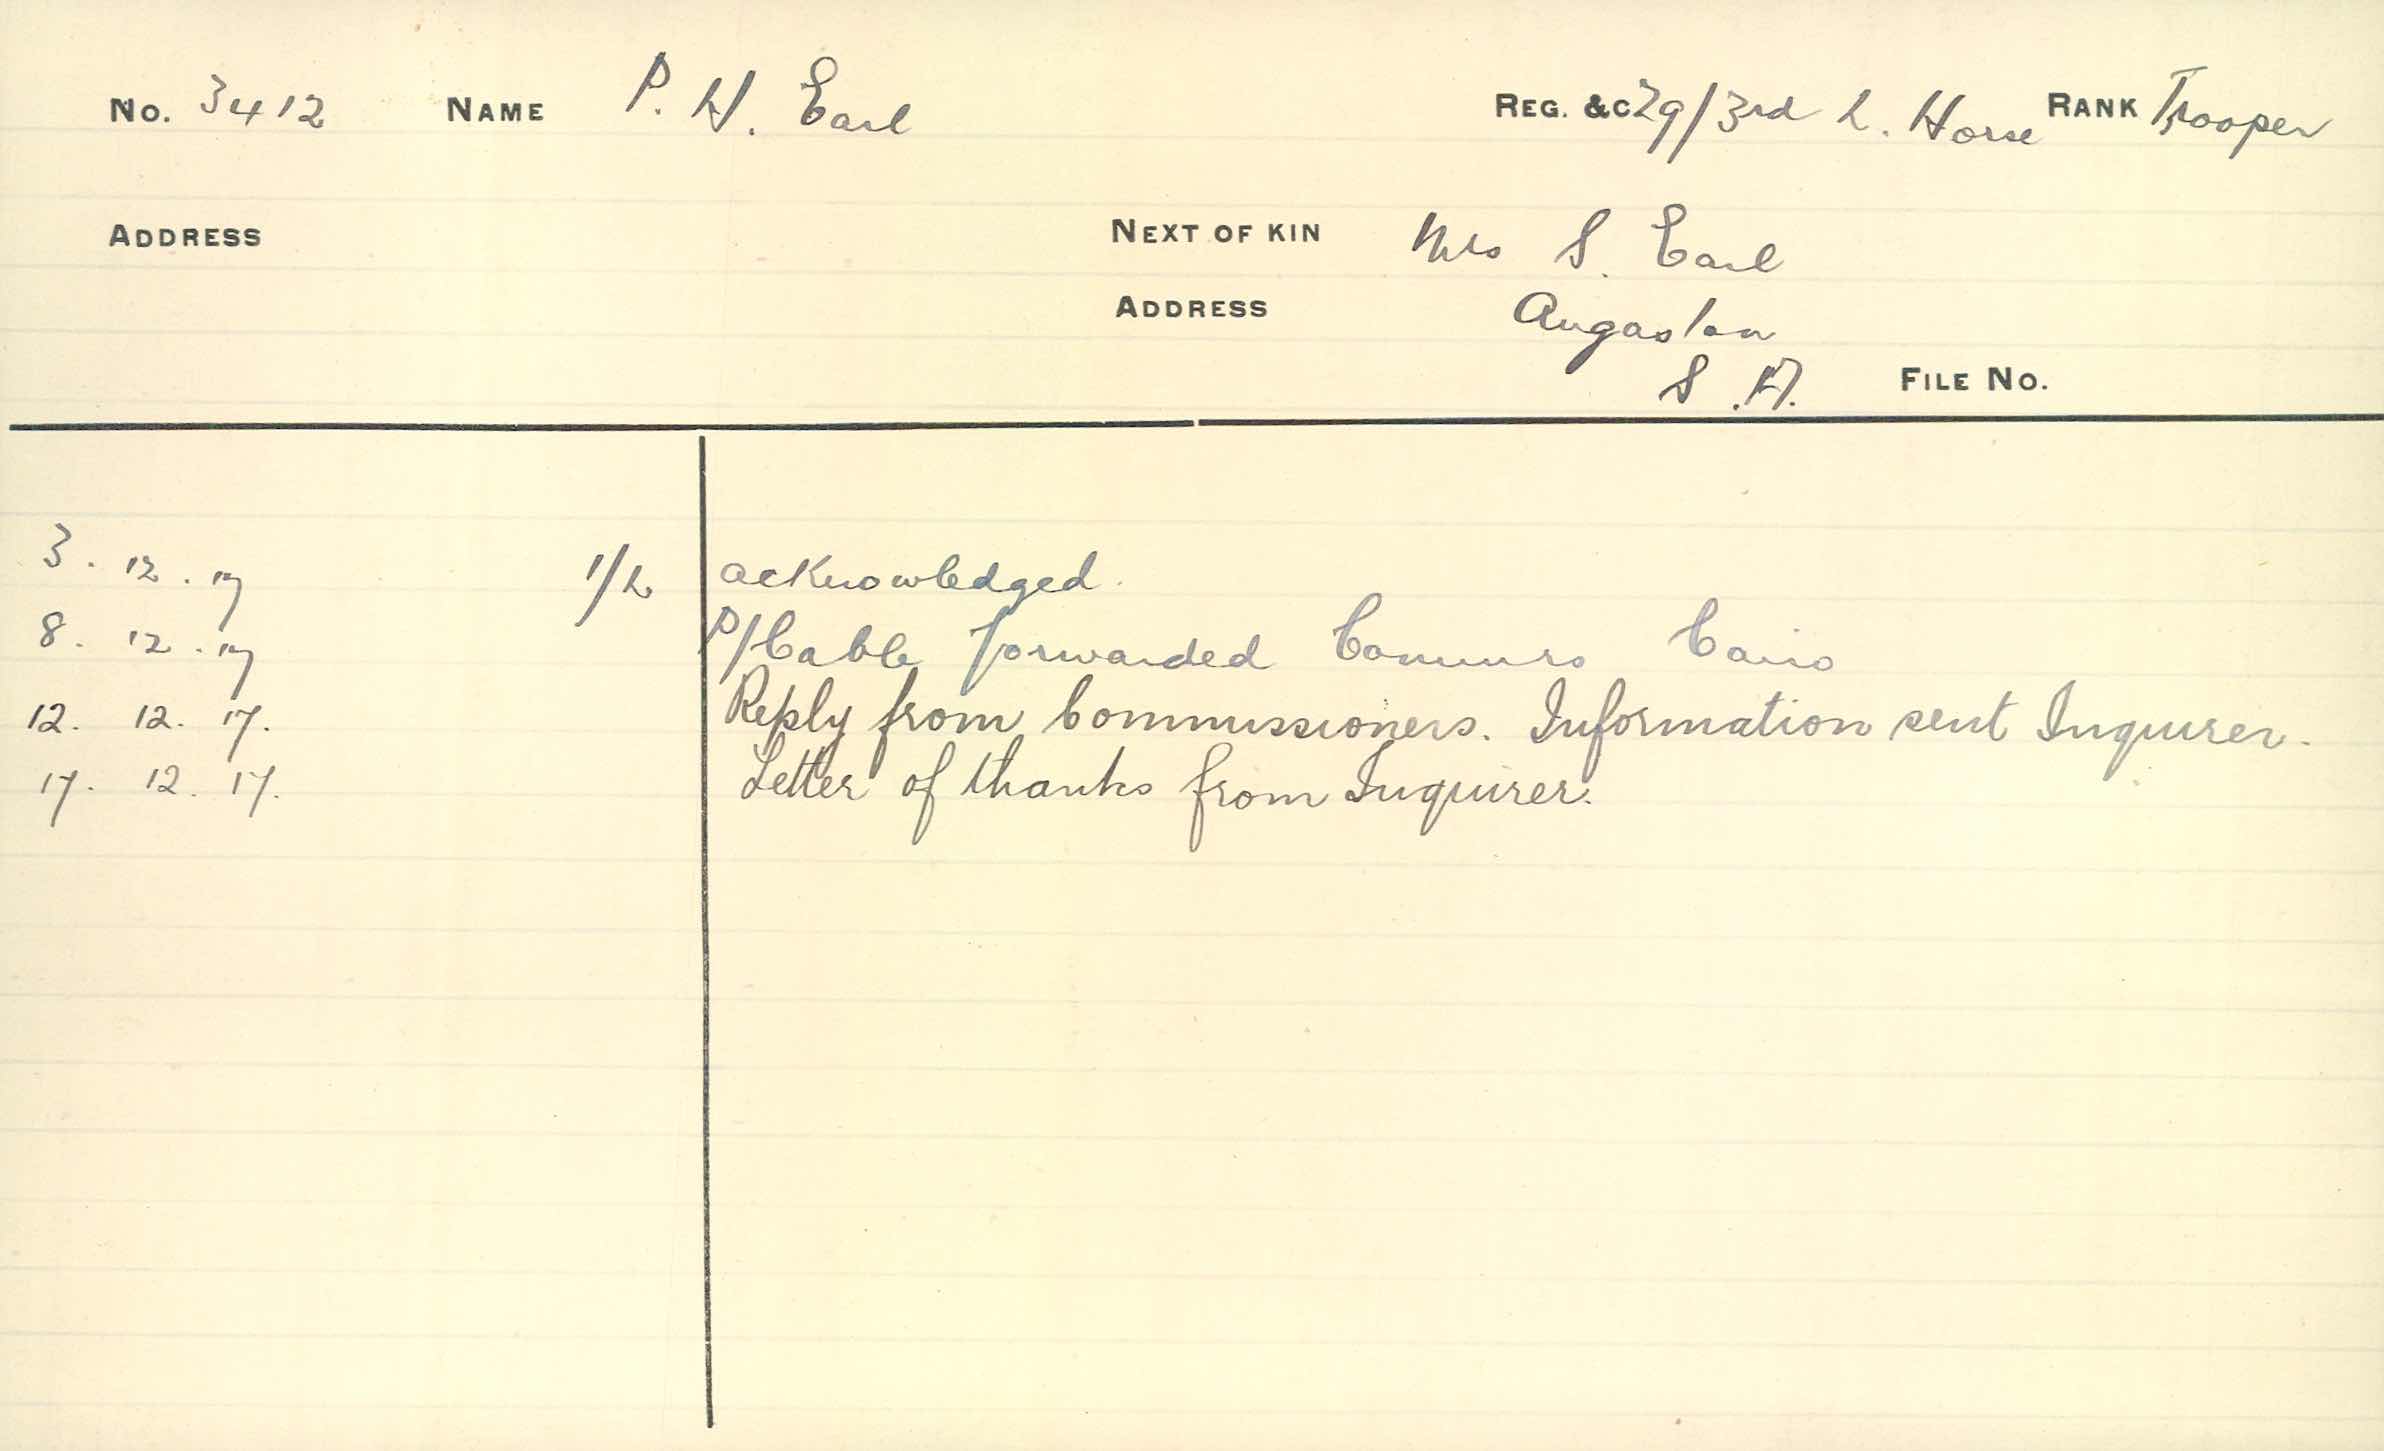 No. 3412 NAME P. H. Earl REG. &C 29/3rd L. Horse RANK Trooper
ADDRESS NEXT OF KIN Mrs S. Earl
ADDRESS Angaston
S.A. FILE No.
3. 12. 17 1/L acknowledged.
8. 12. 17 P/Cable forwarded Commrs Cairo
12. 12. 17. Reply from Commissioners. Information sent Inquirer.
17. 12. 17. Letter of thanks from Inquirer.